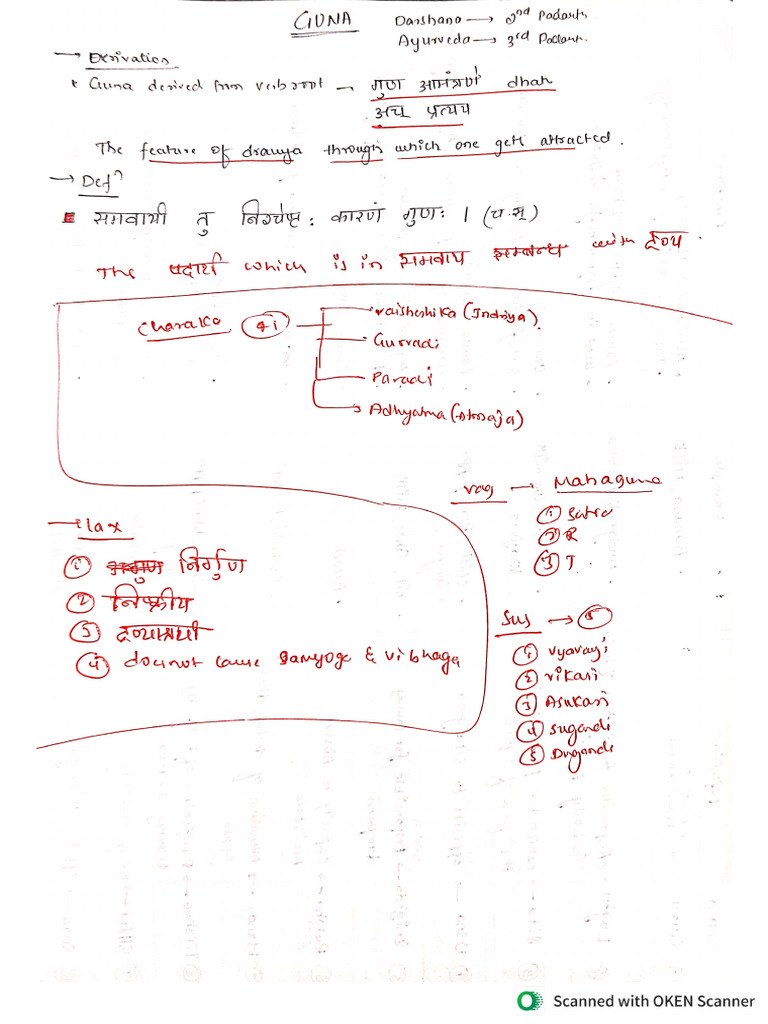 GUNA
Darshana → 2nd Padarth
Ayurveda → 3rd Padarth.
→ Derivation
* Guna derived from verb root → गुण आमंत्रणे dhatu
अच् प्रत्यय
The feature of dravya through which one gets attracted.
→ Defn
समवायी तु निश्चेष्ट: कारणं गुणः । (च.सू)
The पदार्थ which is in समवाय सम्बन्ध with द्रव्य.
Charaka 41
Vaisheshika (Indriya)
Gurvadi
Paradi
Adhyatma (Atmaja)
Vag → Mahaguna
① Satva
② R
③ T
→ lax
① निर्गुण
② निष्क्रीय
③ द्रव्याश्रयी
④ does not cause Samyoga & vibhaga
Sus → 5
① Vyavayi
② vikasi
③ Asukari
④ sugandi
⑤ Dugandi
Scanned with OKEN Scanner